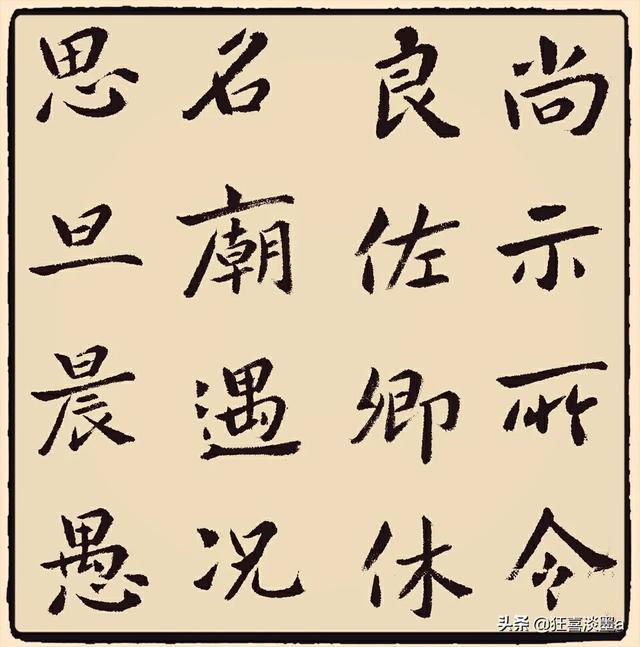 尚示所令
良佐卿休
名廟遇況
思旦晨愚
头条 @狂喜淡墨a